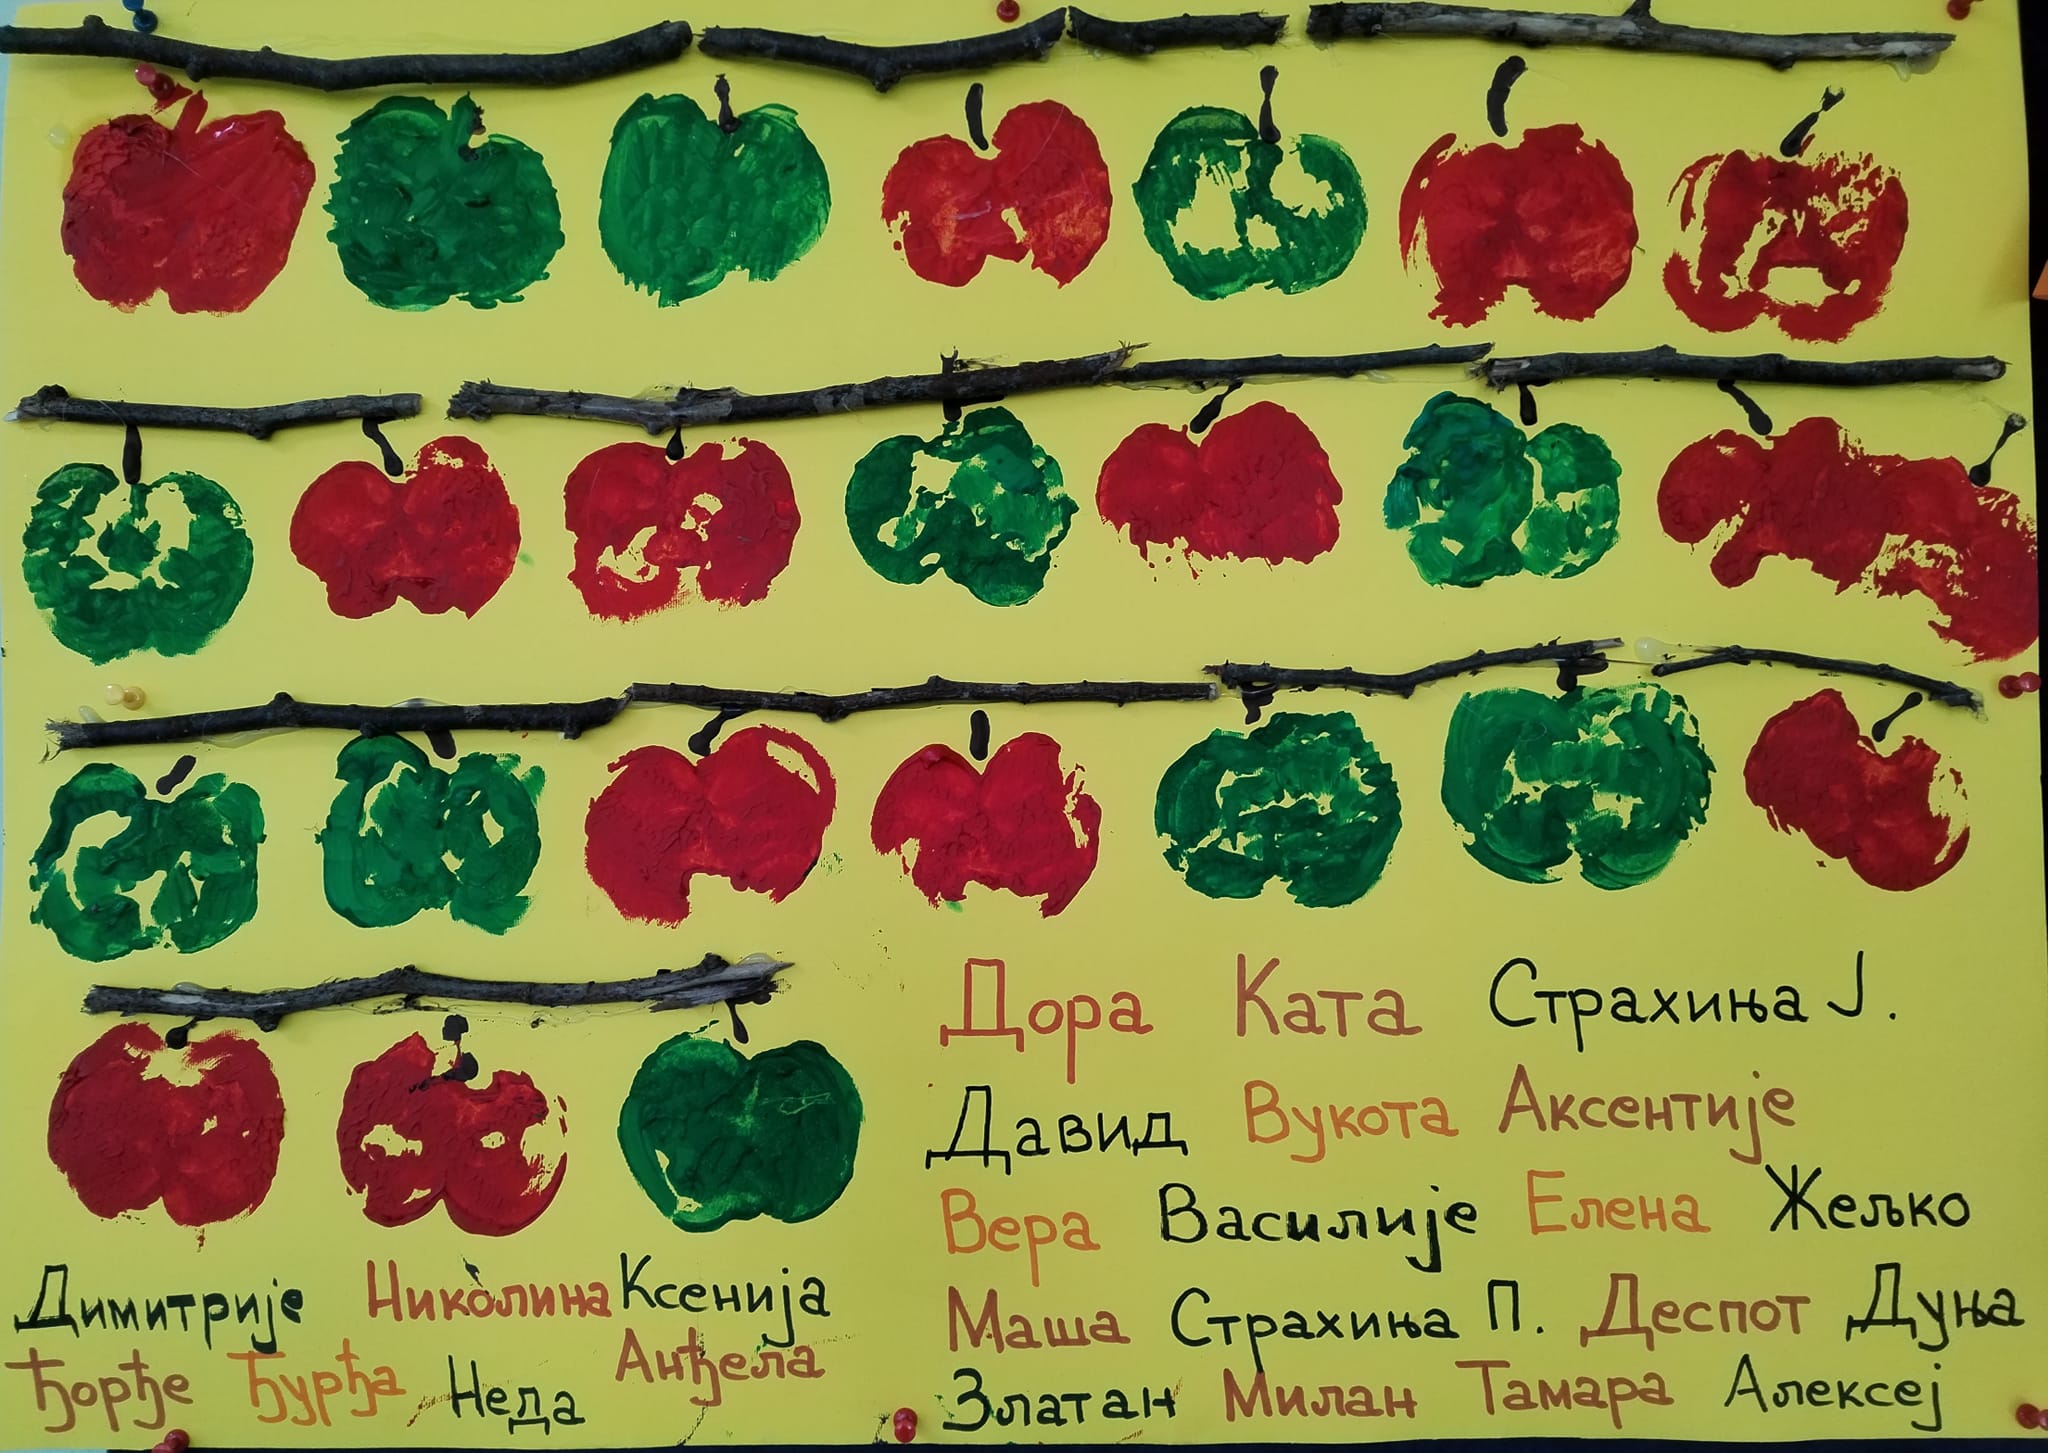 Дора Ката Страхиња Ј.
Давид Вукота Аксентије
Вера Василије Елена Жељко
Маша Страхиња П. Деспот Дуња
Златан Милан Тамара Алексеј
Димитрије Николина Ксенија
Ђорђе Ђурђа Неда Анђела